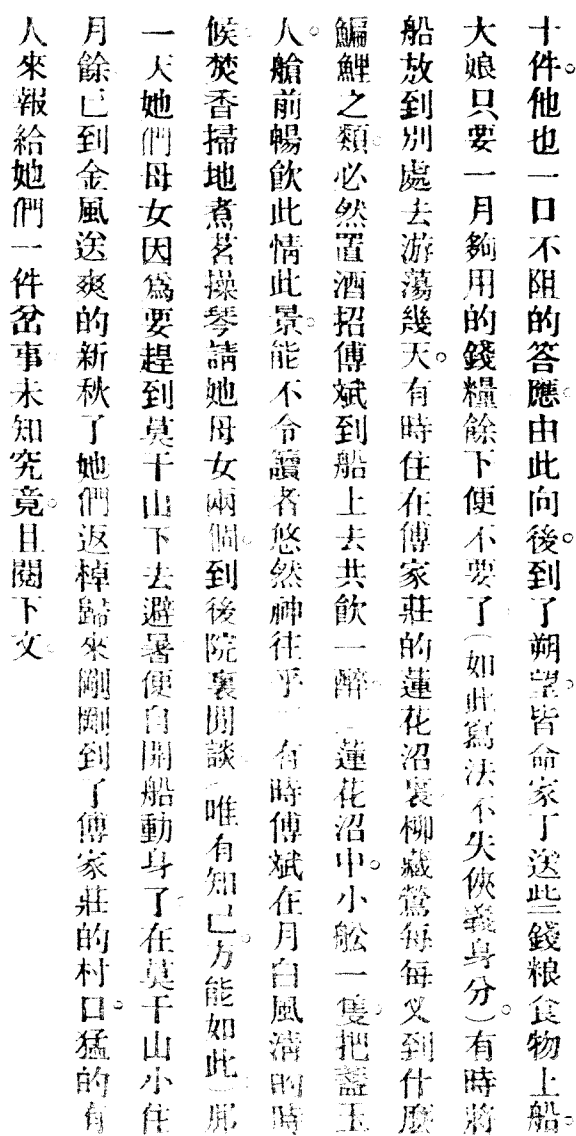 十件。他也一口不阻的答應。由此向後。到了朔望。皆命家丁送些錢粮食物上船。
大娘只要一月夠用的錢糧餘下便不要了（如此寫法不失俠義身分）。有時將
船放到別處去游蕩幾天。有時住在傅家莊的蓮花沼裏柳藏鶯每每叉到什麼
鯿鯉之類。必然置酒招傅斌到船上去共飲一醉。（蓮花沼中。小舩一隻。把盞玉
人。艙前暢飲此情此景。能不令讀者悠然神往乎）有時傅斌在月白風清的時
候。焚香掃地煮茗操琴請她母女兩個。到後院裏閒談（唯有知己。方能如此）那
一天她們母女因爲要趕到莫干山下去避暑便自開船動身了。在莫干山小住
月餘已到金風送爽的新秋了她們返棹歸來剛剛到了傅家莊的村口。猛的有
人來報給她們一件岔事。未知究竟。且閱下文。